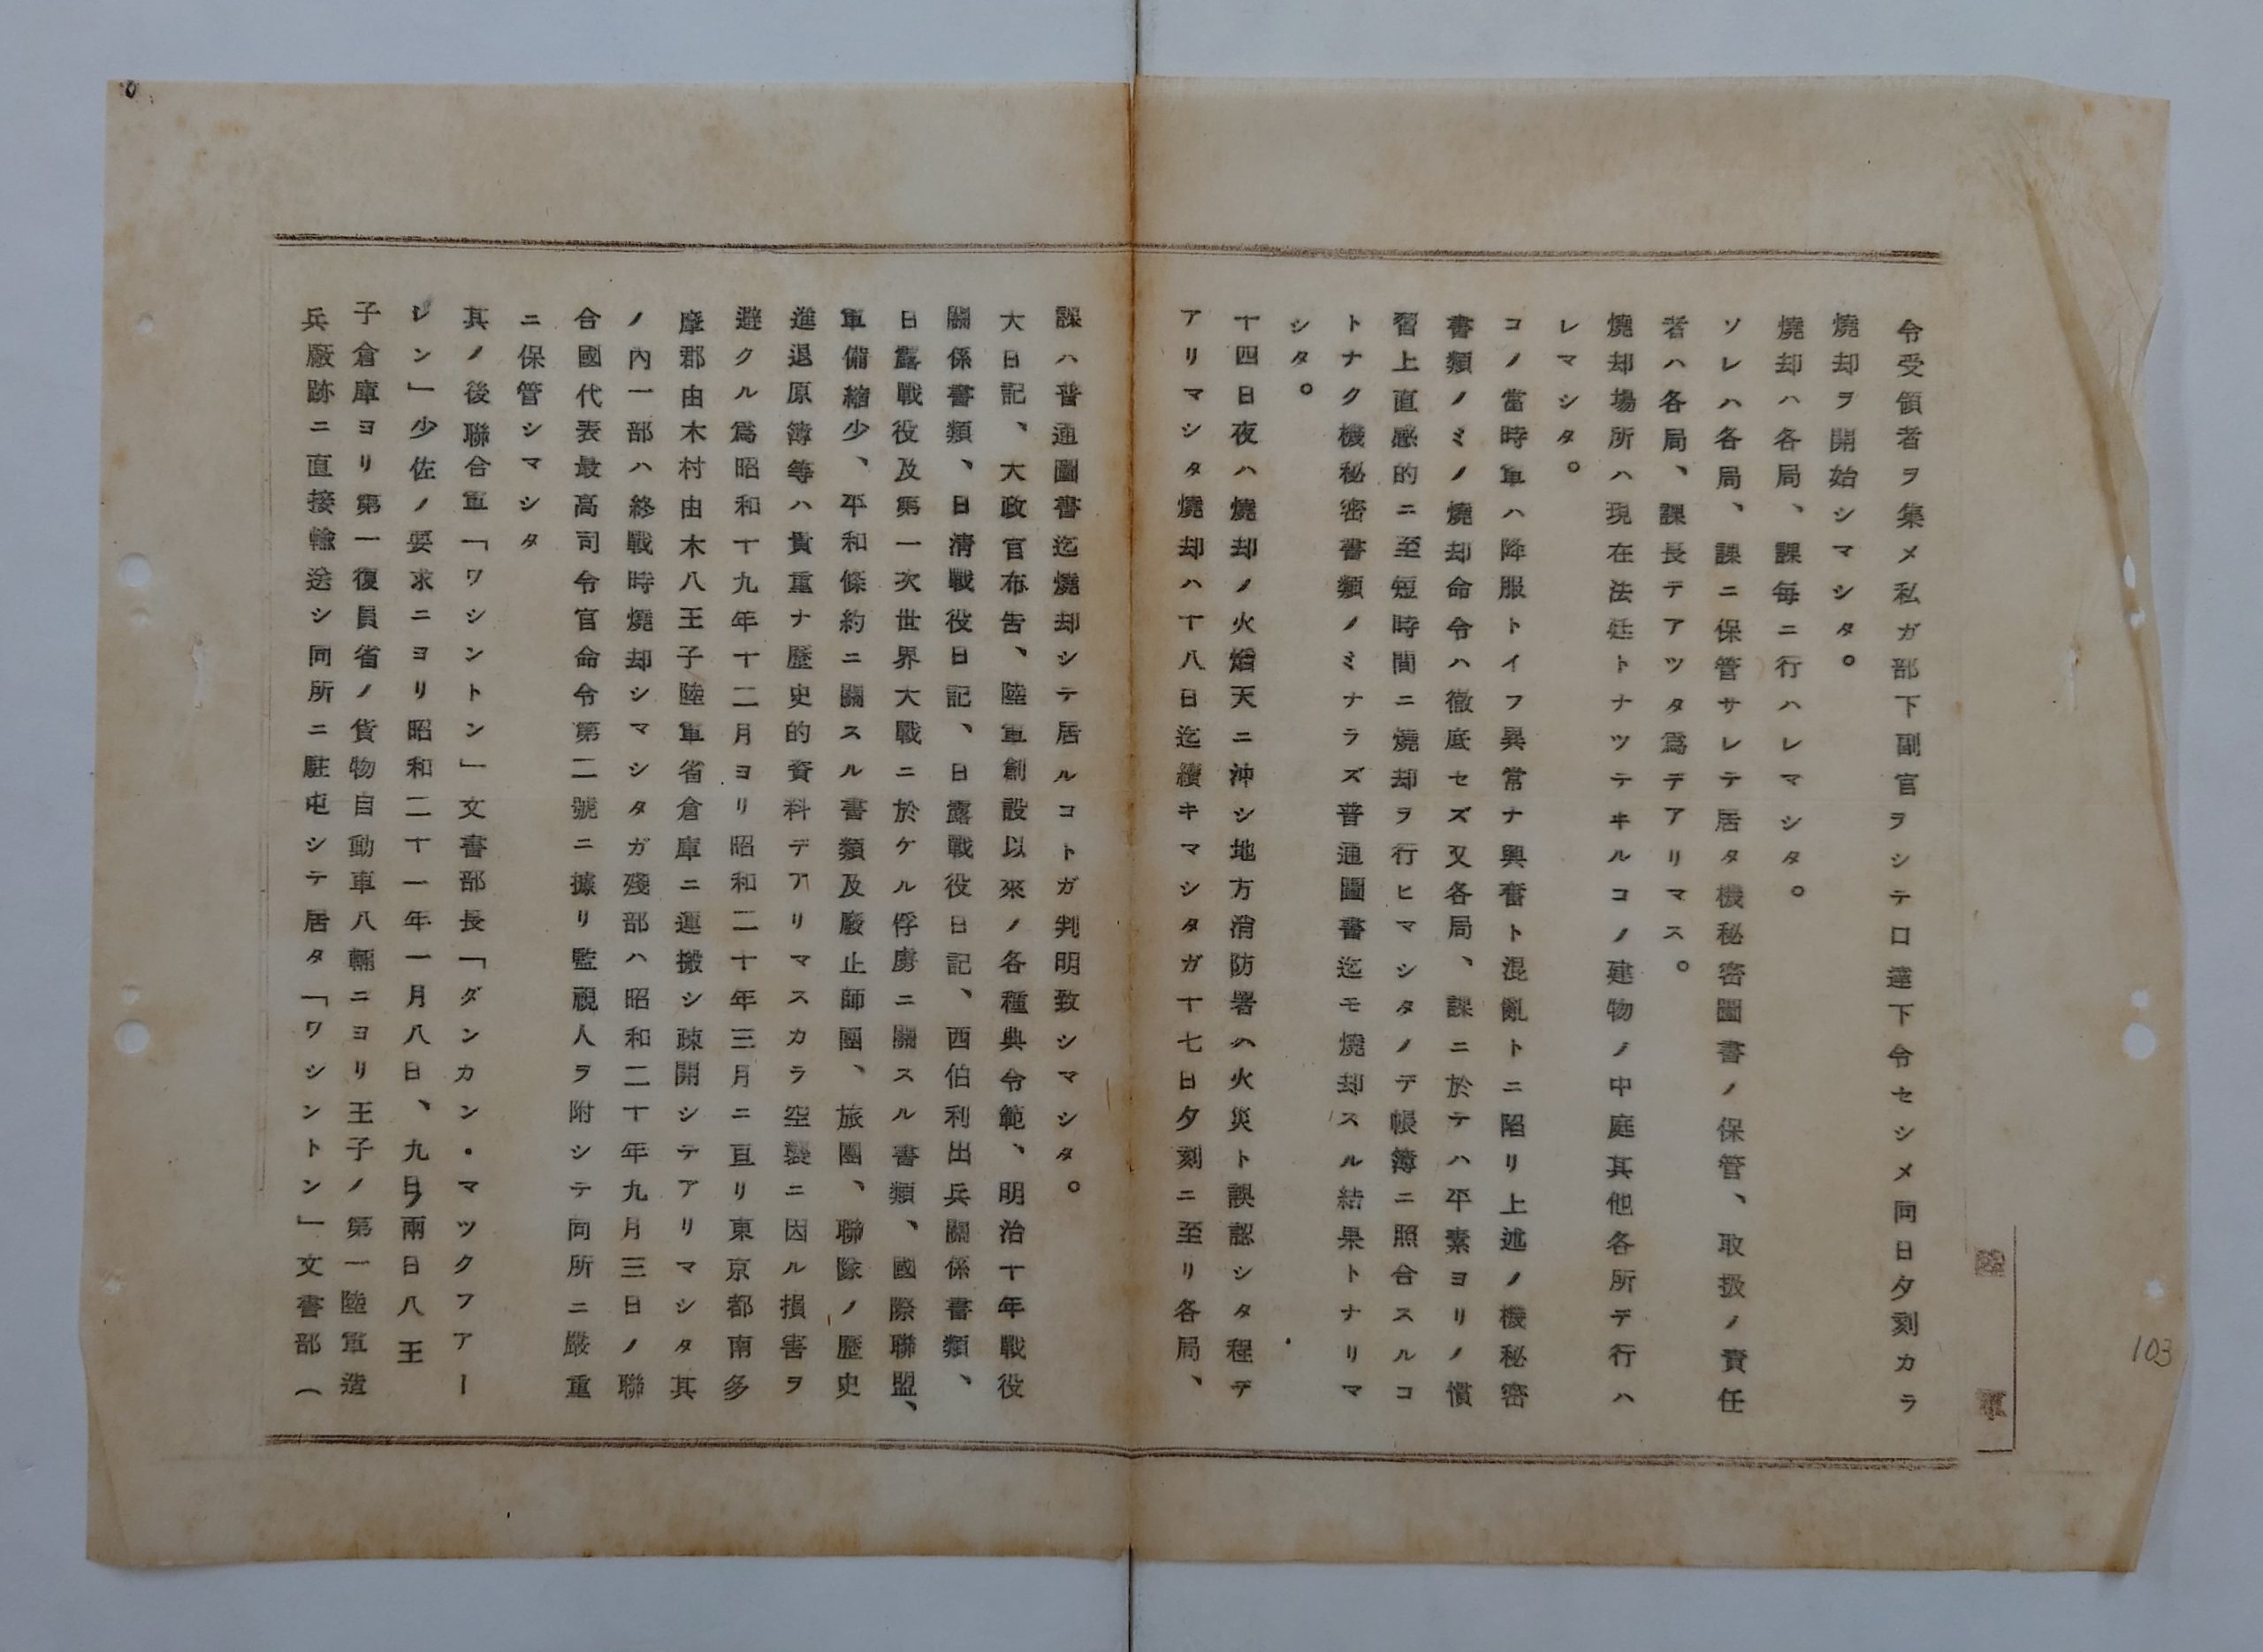 陸
軍
103
令受領者ヲ集メ私ガ部下副官ヲシテ口達下令セシメ同日夕刻カラ
燒却ヲ開始シマシタ。
燒却ハ各局、課毎ニ行ハレマシタ。
ソレハ各局、課ニ保管サレテ居タ機秘密圖書ノ保管、取扱ノ責任
者ハ各局、課長テアツタ爲デアリマス。
燒却場所ハ現在法廷トナツテヰルコノ建物ノ中庭其他各所デ行ハ
レマシタ。
コノ當時軍ハ降服トイフ異常ナ興奮ト混亂トニ陷リ上述ノ機秘密
書類ノミノ燒却命令ハ徹底セズ又各局、課ニ於テハ平素ヨリノ慣
習上直感的ニ至短時間ニ燒却ヲ行ヒマシタノデ帳簿ニ照合スルコ
トナク機秘密書類ノミナラズ普通圖書迄モ燒却スル結果トナリマ
シタ。
十四日夜ハ燒却ノ火焰天ニ沖シ地方消防署ハ火災ト誤認シタ程デ
アリマシタ燒却ハ十八日迄續キマシタガ十七日夕刻ニ至リ各局、
課ハ普通圖書迄燒却シテ居ルコトガ判明致シマシタ。
大日記、大政官布告、陸軍創設以來ノ各種典令範、明治十年戰役
關係書類、日清戰役日記、日露戰役日記、西伯利出兵關係書類、
日露戰役及第一次世界大戰ニ於ケル俘虜ニ關スル書類、國際聯盟、
軍備縮少、平和條約ニ關スル書類及廢止師團、旅團、聯隊ノ歷史
進退原簿等ハ貴重ナ歷史的資料デアリマスカラ空襲ニ因ル損害ヲ
避クル爲昭和十九年十二月ヨリ昭和二十年三月ニ亘リ東京都南多
摩郡由木村由木八王子陸軍省倉庫ニ運搬シ疎開シテアリマシタ其
ノ內一部ハ終戰時燒却シマシタガ殘部ハ昭和二十年九月三日ノ聯
合國代表最高司令官命令第二號ニ據リ監視人ヲ附シテ同所ニ嚴重
ニ保管シマシタ
其ノ後聯合軍「ワシントン」文書部長「ダンカン・マツクフアー
レン」少佐ノ要求ニヨリ昭和二十一年一月八日、九日ノ兩日八王
子倉庫ヨリ第一復員省ノ貨物自動車八輛ニヨリ王子ノ第一陸軍造
兵廠跡ニ直接輸送シ同所ニ駐屯シテ居タ「ワシントン」文書部（